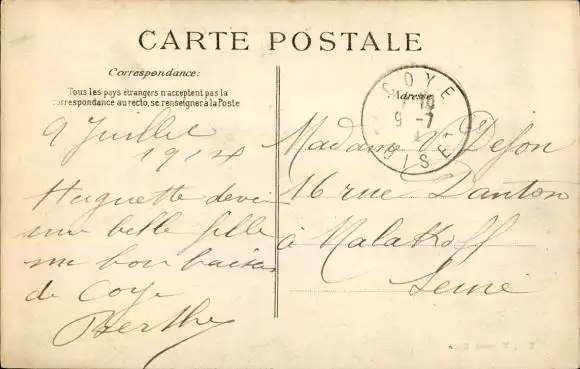 CARTE POSTALE
Correspondance:
Tous les pays étrangers n'acceptent pas la
correspondance au recto, se renseigner à la Poste
9 Juillet
1914
Huguette devient
une belle fille
un bon baiser
de Coye
Berthe
Adresse
COYE
9-7
OISE
Madame Defon
16 rue Danton
à Malakoff
Seine